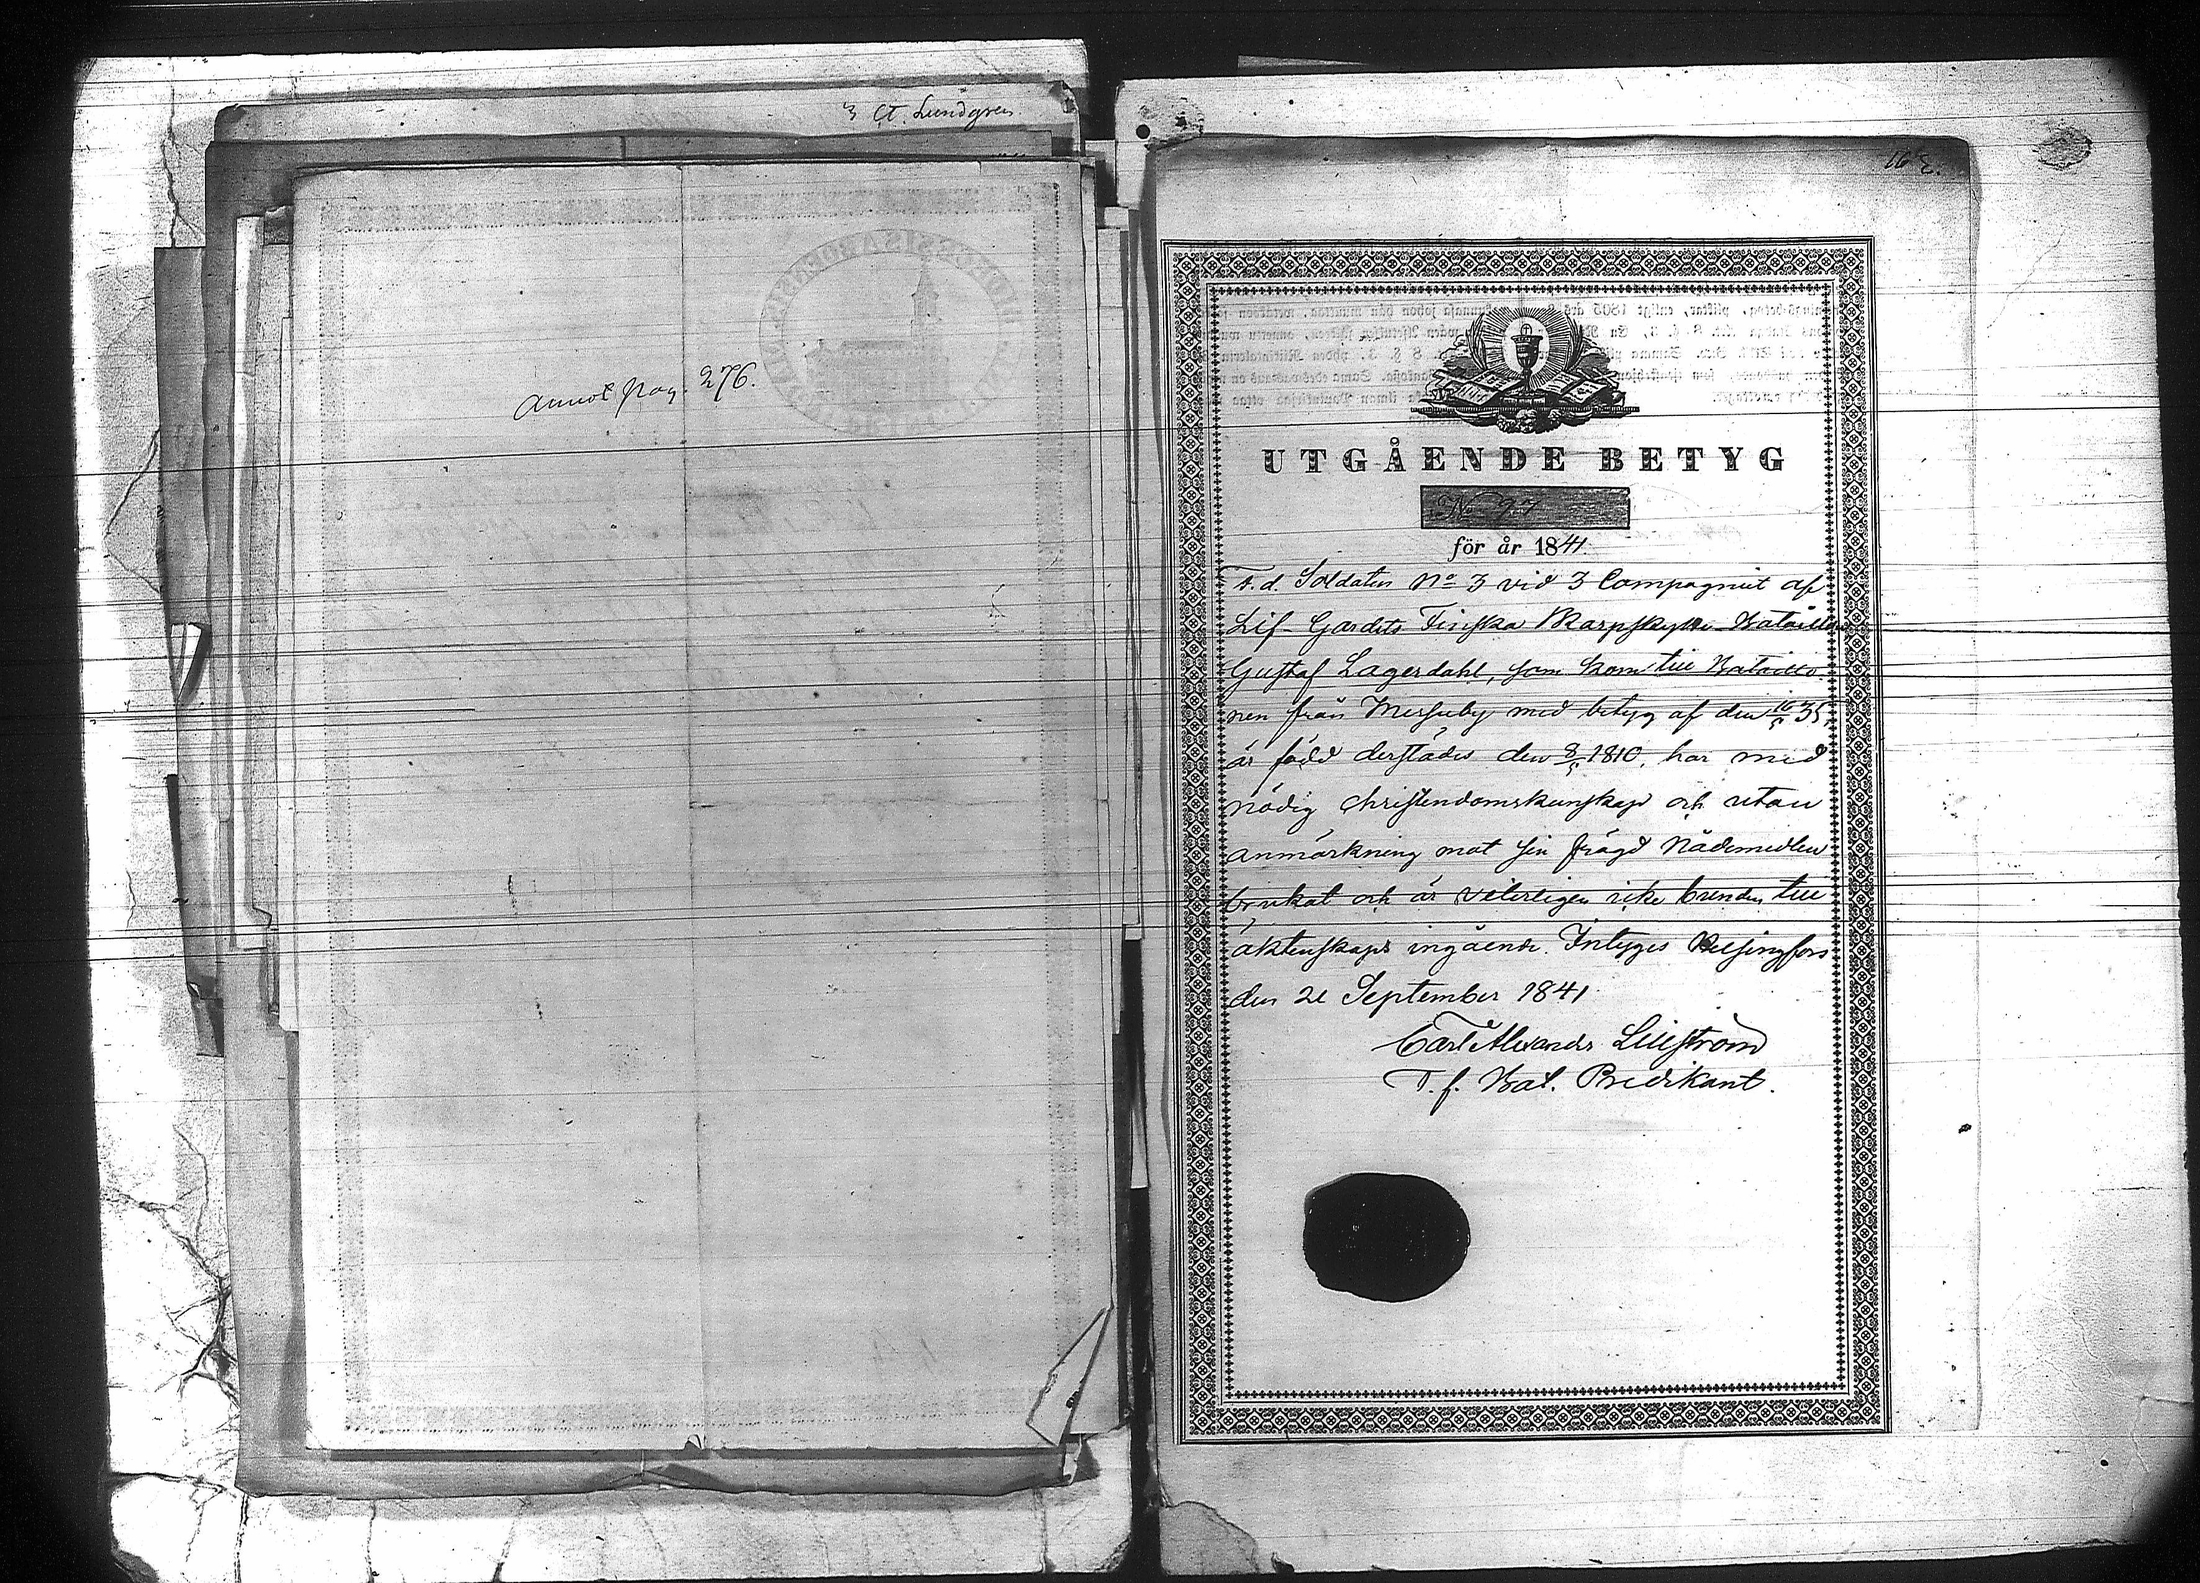 3 Ct. Lundgren
Annot. pag. 276.
162.
UTGÅENDE BETYG
No 97
för år 1841.
F. d. Soldaten No 3 vid 3 Compagniet af
Lif-Gardets Finska Skarpskytte-Bataillon
Gustaf Lagerdahl, som kom till Bataillo-
nen från Messuby med betyg af den 16/5 35,
är född derstädes den 8/5 1810, har med
nödig christendomskunskap och utan
anmärkning mot sin frägd Nådemedlen
brukat och är veterligen icke bunden till
äktenskaps ingående. Intyges Helsingfors
den 21 September 1841.
Carl Alexander Liliström
T. f. Bat. Predikant.